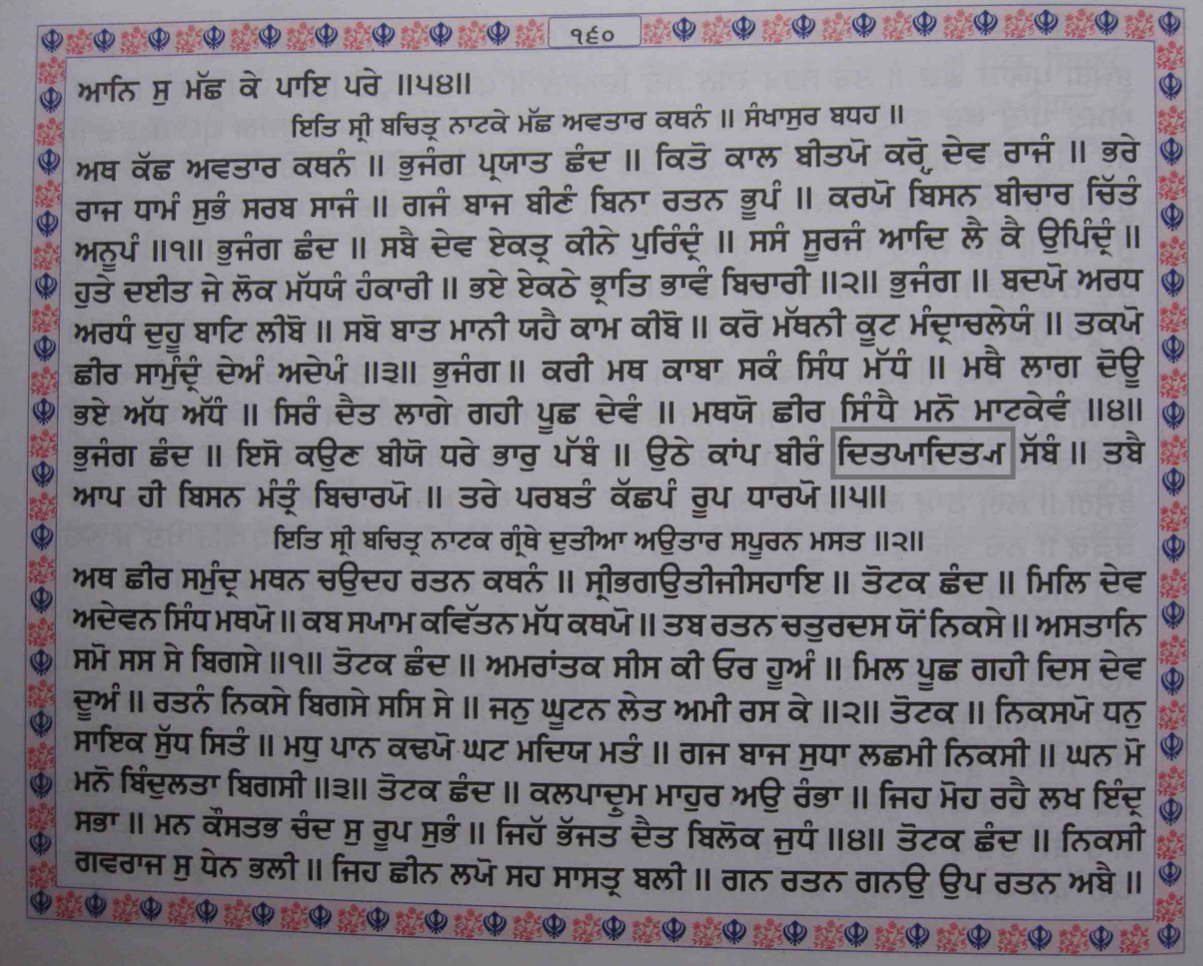 ੧੬੦
ਆਨਿ ਸੁ ਮੱਛ ਕੇ ਪਾਇ ਪਰੇ ॥੫੪॥
ਇਤਿ ਸ੍ਰੀ ਬਚਿਤ੍ਰ ਨਾਟਕੇ ਮੱਛ ਅਵਤਾਰ ਕਥਨੰ ॥ ਸੰਖਾਸੁਰ ਬਧਹ ॥
ਅਥ ਕੱਛ ਅਵਤਾਰ ਕਥਨੰ ॥ ਭੁਜੰਗ ਪ੍ਰਯਾਤ ਛੰਦ ॥ ਕਿਤੋ ਕਾਲ ਬੀਤਯੋ ਕਰ੍ਹੋ ਦੇਵ ਰਾਜੰ ॥ ਭਰੇ
ਰਾਜ ਧਾਮੰ ਸੁਭੰ ਸਰਬ ਸਾਜੰ ॥ ਗਜੰ ਬਾਜ ਬੀਣੰ ਬਿਨਾ ਰਤਨ ਭੂਪੰ ॥ ਕਰਯੋ ਬਿਸਨ ਬੀਚਾਰ ਚਿੱਤੰ
ਅਨੂਪੰ ॥੧॥ ਭੁਜੰਗ ਛੰਦ ॥ ਸਬੈ ਦੇਵ ਏਕਤ੍ਰ ਕੀਨੇ ਪੁਰਿੰਦ੍ਰੰ ॥ ਸਸੰ ਸੂਰਜੰ ਆਦਿ ਲੈ ਕੈ ਉਪਿੰਦ੍ਰੰ ॥
ਹੁਤੇ ਦਈਤ ਜੇ ਲੋਕ ਮੱਧਯੰ ਹੰਕਾਰੀ ॥ ਭਏ ਏਕਠੇ ਭ੍ਰਾਤਿ ਭਾਵੰ ਬਿਚਾਰੀ ॥੨॥ ਭੁਜੰਗ ॥ ਬਦਯੋ ਅਰਧ
ਅਰਧੰ ਦੁਹੂ ਬਾਟਿ ਲੀਬੋ ॥ ਸਬੋ ਬਾਤ ਮਾਨੀ ਯਹੈ ਕਾਮ ਕੀਬੋ ॥ ਕਰੋ ਮੱਥਨੀ ਕੂਟ ਮੰਦ੍ਰਾਚਲੇਯੰ ॥ ਤਕਯੋ
ਛੀਰ ਸਾਮੁੰਦ੍ਰੰ ਦੇਅੰ ਅਦੇਯੰ ॥੩॥ ਭੁਜੰਗ ॥ ਕਰੀ ਮਥ ਕਾਬਾ ਸਕੰ ਸਿੰਧ ਮੱਧੰ ॥ ਮਥੈ ਲਾਗ ਦੋਊ
ਭਏ ਅੱਧ ਅੱਧੰ ॥ ਸਿਰੰ ਦੈਤ ਲਾਗੇ ਗਹੀ ਪੂਛ ਦੇਵੰ ॥ ਮਥਯੋ ਛੀਰ ਸਿੰਧੈ ਮਨੋ ਮਾਟਕੇਵੰ ॥੪॥
ਭੁਜੰਗ ਛੰਦ ॥ ਇਸੋ ਕਉਣ ਬੀਯੋ ਧਰੇ ਭਾਰੁ ਪੱਬੰ ॥ ਉਠੇ ਕਾਂਪ ਬੀਰੰ ਸੱਬੰ ॥ ਤਬੈ
ਆਪ ਹੀ ਬਿਸਨ ਮੰਤ੍ਰੰ ਬਿਚਾਰਯੋ ॥ ਤਰੇ ਪਰਬਤੰ ਕੱਛਪੰ ਰੂਪ ਧਾਰਯੋ ॥੫॥
ਇਤਿ ਸ੍ਰੀ ਬਚਿਤ੍ਰ ਨਾਟਕ ਗ੍ਰੰਥੇ ਦੁਤੀਆ ਅਉਤਾਰ ਸਪੂਰਨ ਮਸਤ ॥੨॥
ਅਥ ਛੀਰ ਸਮੁੰਦ੍ਰ ਮਥਨ ਚਉਦਹ ਰਤਨ ਕਥਨੰ ॥ ਸ੍ਰੀਭਗਉਤੀਜੀਸਹਾਇ ॥ ਤੋਟਕ ਛੰਦ ॥ ਮਿਲਿ ਦੇਵ
ਅਦੇਵਨ ਸਿੰਧ ਮਥਯੋ ॥ ਕਬ ਸਯਾਮ ਕਵਿੱਤਨ ਮੱਧ ਕਥਯੋ ॥ ਤਬ ਰਤਨ ਚਤੁਰਦਸ ਯੋਂ ਨਿਕਸੇ ॥ ਅਸਤਾਨਿ
ਸਮੋ ਸਸ ਸੇ ਬਿਗਸੇ ॥੧॥ ਤੋਟਕ ਛੰਦ ॥ ਅਮਰਾਂਤਕ ਸੀਸ ਕੀ ਓਰ ਹੂਅੰ ॥ ਮਿਲ ਪੂਛ ਗਹੀ ਦਿਸ ਦੇਵ
ਦੂਅੰ ॥ ਰਤਨੰ ਨਿਕਸੇ ਬਿਗਸੇ ਸਸਿ ਸੇ ॥ ਜਨੁ ਘੂਟਨ ਲੇਤ ਅਮੀ ਰਸ ਕੇ ॥੨॥ ਤੋਟਕ ॥ ਨਿਕਸਯੋ ਧਨੁ
ਸਾਇਕ ਸੁੱਧ ਸਿਤੰ ॥ ਮਧੁ ਪਾਨ ਕਢਯੋ ਘਟ ਮਦਿਯ ਮਤੰ ॥ ਗਜ ਬਾਜ ਸੁਧਾ ਲਛਮੀ ਨਿਕਸੀ ॥ ਘਨ ਮੋ
ਮਨੋ ਬਿੰਦੁਲਤਾ ਬਿਗਸੀ ॥੩॥ ਤੋਟਕ ਛੰਦ ॥ ਕਲਪਾਦ੍ਰੁਮ ਮਾਹੁਰ ਅਉ ਰੰਭਾ ॥ ਜਿਹ ਮੋਹ ਰਹੈ ਲਖ ਇੰਦ੍ਰ
ਸਭਾ ॥ ਮਨ ਕੌਸਤਭ ਚੰਦ ਸੁ ਰੂਪ ਸੁਭੰ ॥ ਜਿਹੱ ਭੱਜਤ ਦੈਤ ਬਿਲੋਕ ਜੁਧੰ ॥੪॥ ਤੋਟਕ ਛੰਦ ॥ ਨਿਕਸੀ
ਗਵਰਾਜ ਸੁ ਧੇਨ ਭਲੀ ॥ ਜਿਹ ਛੀਨ ਲਯੋ ਸਹ ਸਾਸਤ੍ਰ ਬਲੀ ॥ ਗਨ ਰਤਨ ਗਨਉ ਉਪ ਰਤਨ ਅਬੈ ॥